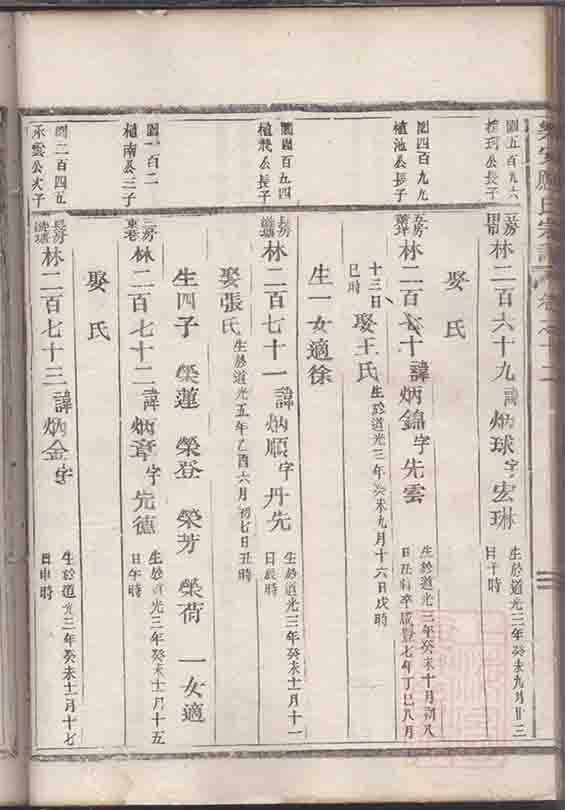 氏宗譜 卷之十二
園五百九六
公長子
林二百六十九 諱炳球字宏琳
生於道光三年癸未九月廿三
日子時
娶氏
園四百九九
植池公長子
林二百七十 諱炳錦字先雲
生於道光三年癸未十月初八
日丑時卒咸豐七年丁巳八月
十三日
巳時
娶王氏
生於道光三年癸未九月十六日戌時
生一女適徐
百五四
公長子
長房
林二百七十一 諱炳順字丹先
生於道光三年癸未十一月十一
日辰時
娶張氏
生於道光五年乙酉六月初七日丑時
生四子 榮蓮 榮登 榮芳 榮荷 一女適
園一百二
植南公三子
三房
林二百七十二 諱炳章字先德
生於道光三年癸未十一月十五
日午時
娶氏
園二百四五
承雲公次子
長房
林二百七十三 諱炳金字
生於道光三年癸未十二月十七
日申時